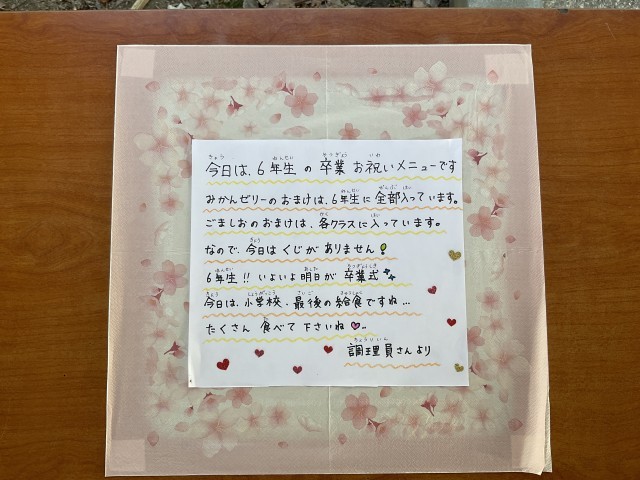 今日は、6年生の卒業お祝いメニューです
みかんゼリーのおまけは、6年生に全部入っています。
ごましおのおまけは、各クラスに入っています。
なので、今日はくじがありません!
6年生!!いよいよ明日が卒業式
今日は、小学校、最後の給食ですね…
たくさん食べて下さいね
調理員さんより